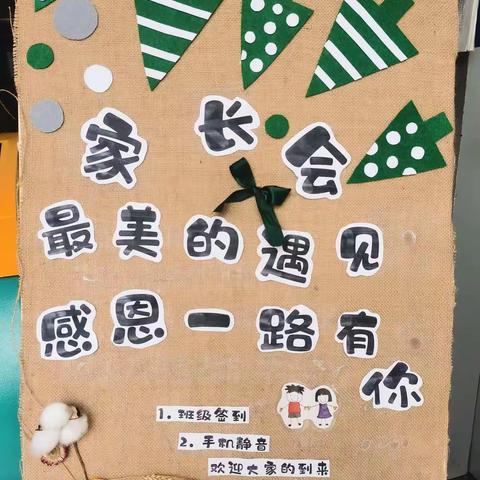 家长会
最美的遇见
感恩一路有你
1. 班级签到
2. 手机静音
欢迎大家的到来